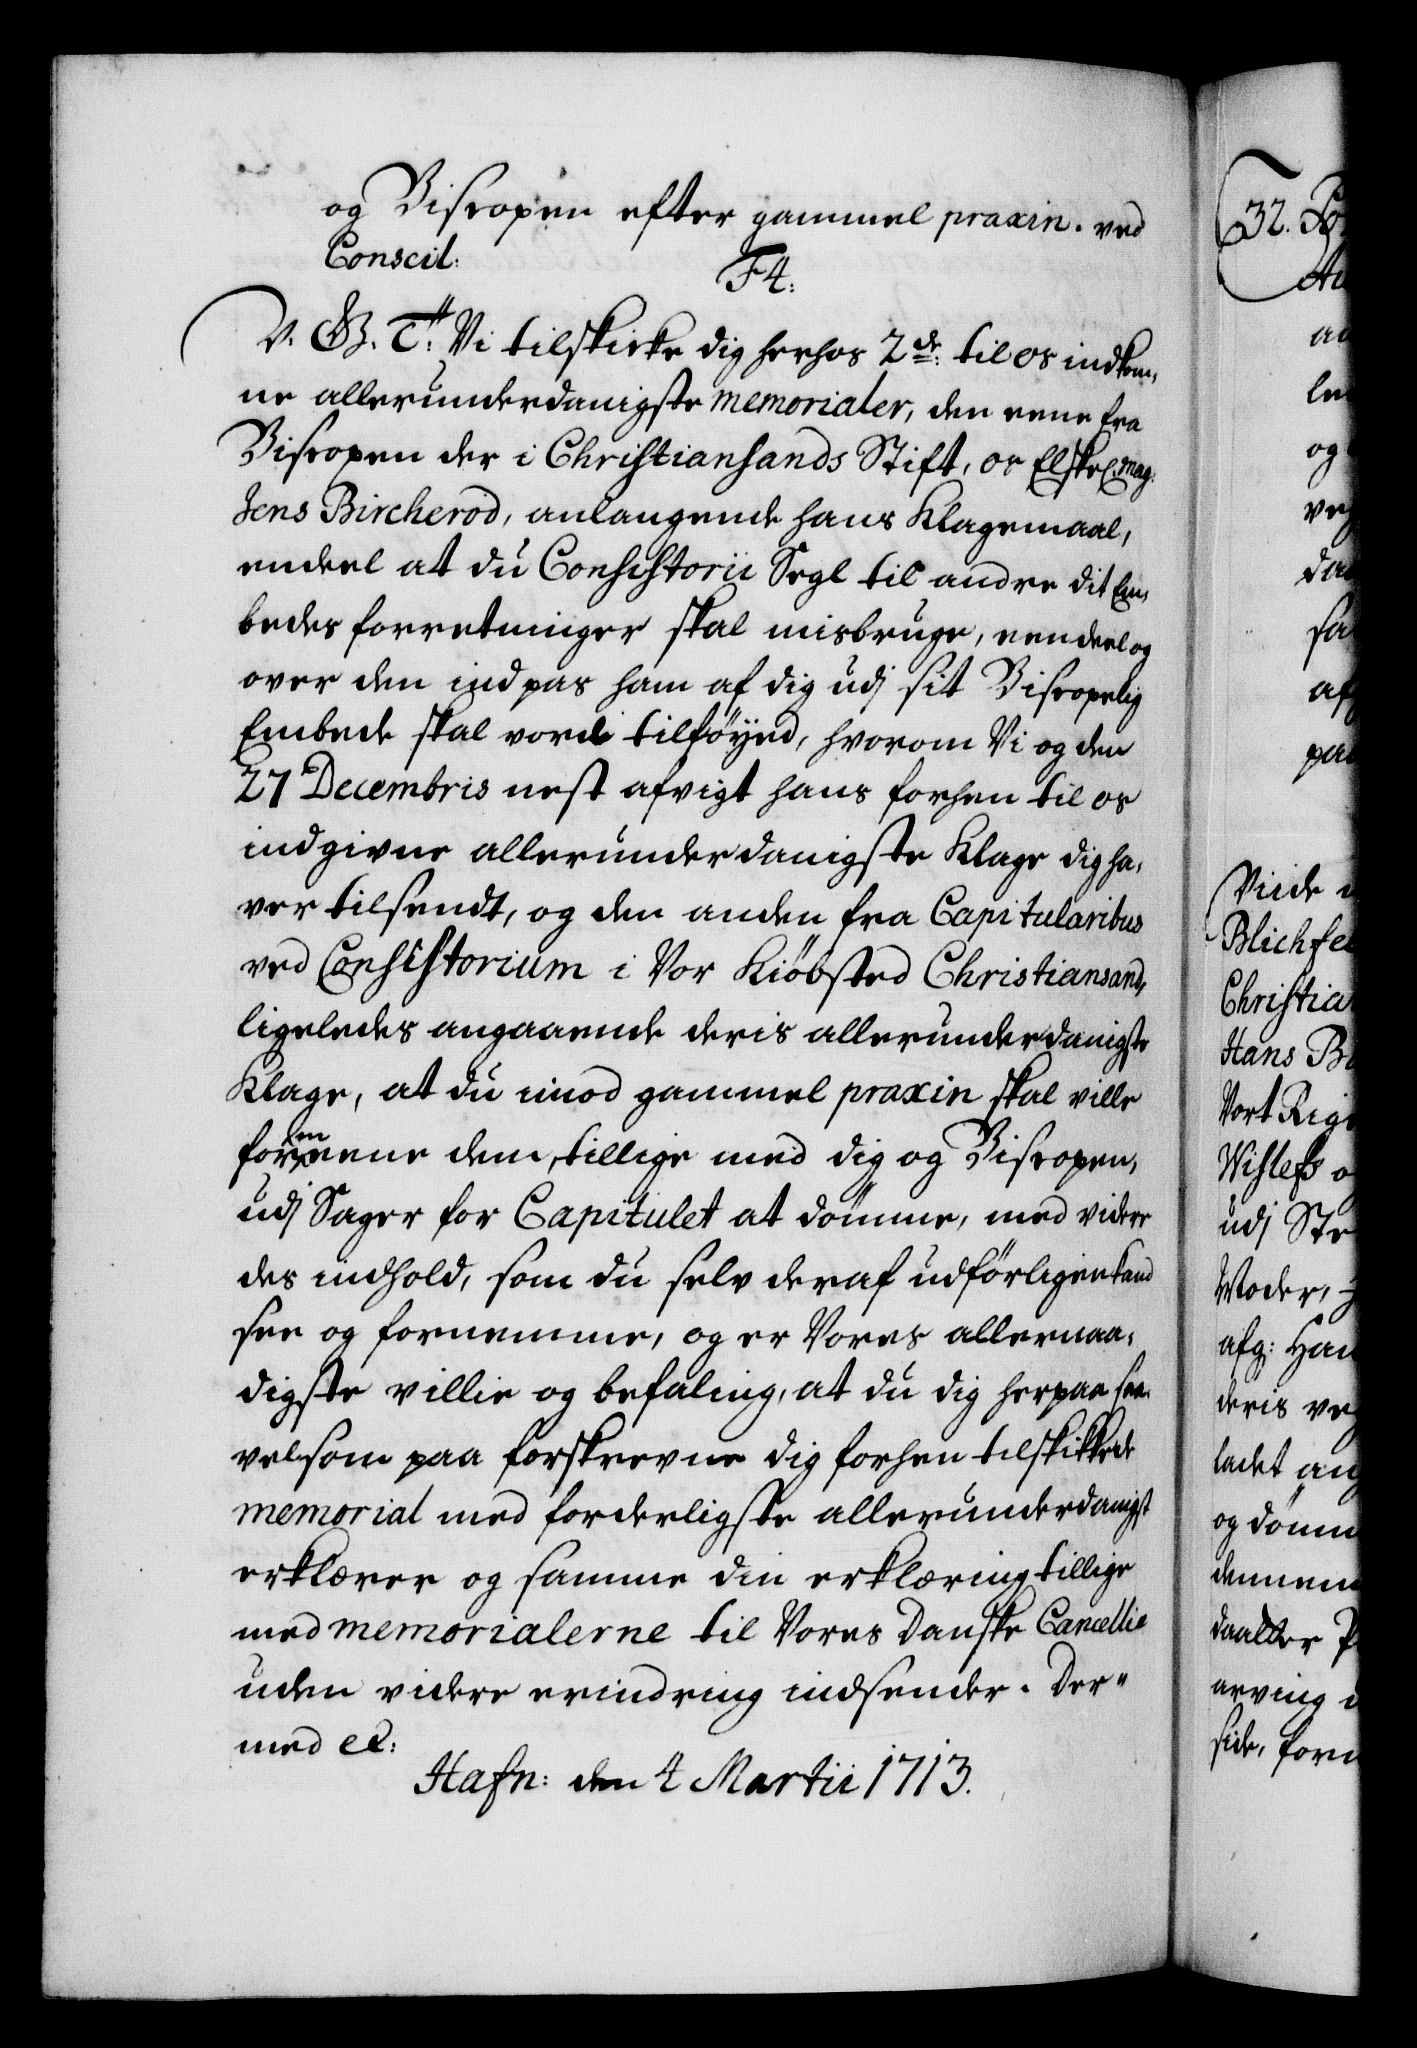 og Biscopen efter gammel praxin. ved
Conscil:
F4:
V. G. T: Vi tilskicke dig herhos 2de: til os indkom,
ne allerunderdanigste memorialer, den eene fra
Biscopen der i Christiansands Stift, os Elskel. Mag.
Jens Bircherod, anlangende hans Klagemaal,
endeel at du Consistorii Segl til andre dit Em,
bedes forretninger skal misbruge, eendeel og
over den indpas ham af dig udj sit Biscopelig
Embede skal vorde tilföyed, hvorom Vi og den
27 Decembris nest afvigt hans forhen til os
indgivne allerunderdanigste Klage dig ha,
ver tilsendt, og den anden fra Capitularibus
ved Consistorium i Vor Kiöbsted Christiansand,
ligeledes angaaende deris allerunderdanigste
Klage, at du imod gammel praxin skal ville
formeene dem, tillige med dig og Biscopen,
udj Sager for Capitulet at dömme, med videre
des indhold, som du selv deraf udförligen kand
see og fornemme, og er Vores allernaa,
digste villie og befaling, at du dig herpaa saa,
velsom paa forskrevne dig forhen tilskikkede
memorial med forderligste allerunderdanigst
erklærer og samme din erklæring tillige
med memorialerne til Vores Danske Cancellie
uden videre erindring indsender. Der"
med et:
Hafn: den 4 Martii 1713.
32.
og
Viide
Christia
Hans
Vort
udj
Moder,
afg:
deris
ladet
og
side,